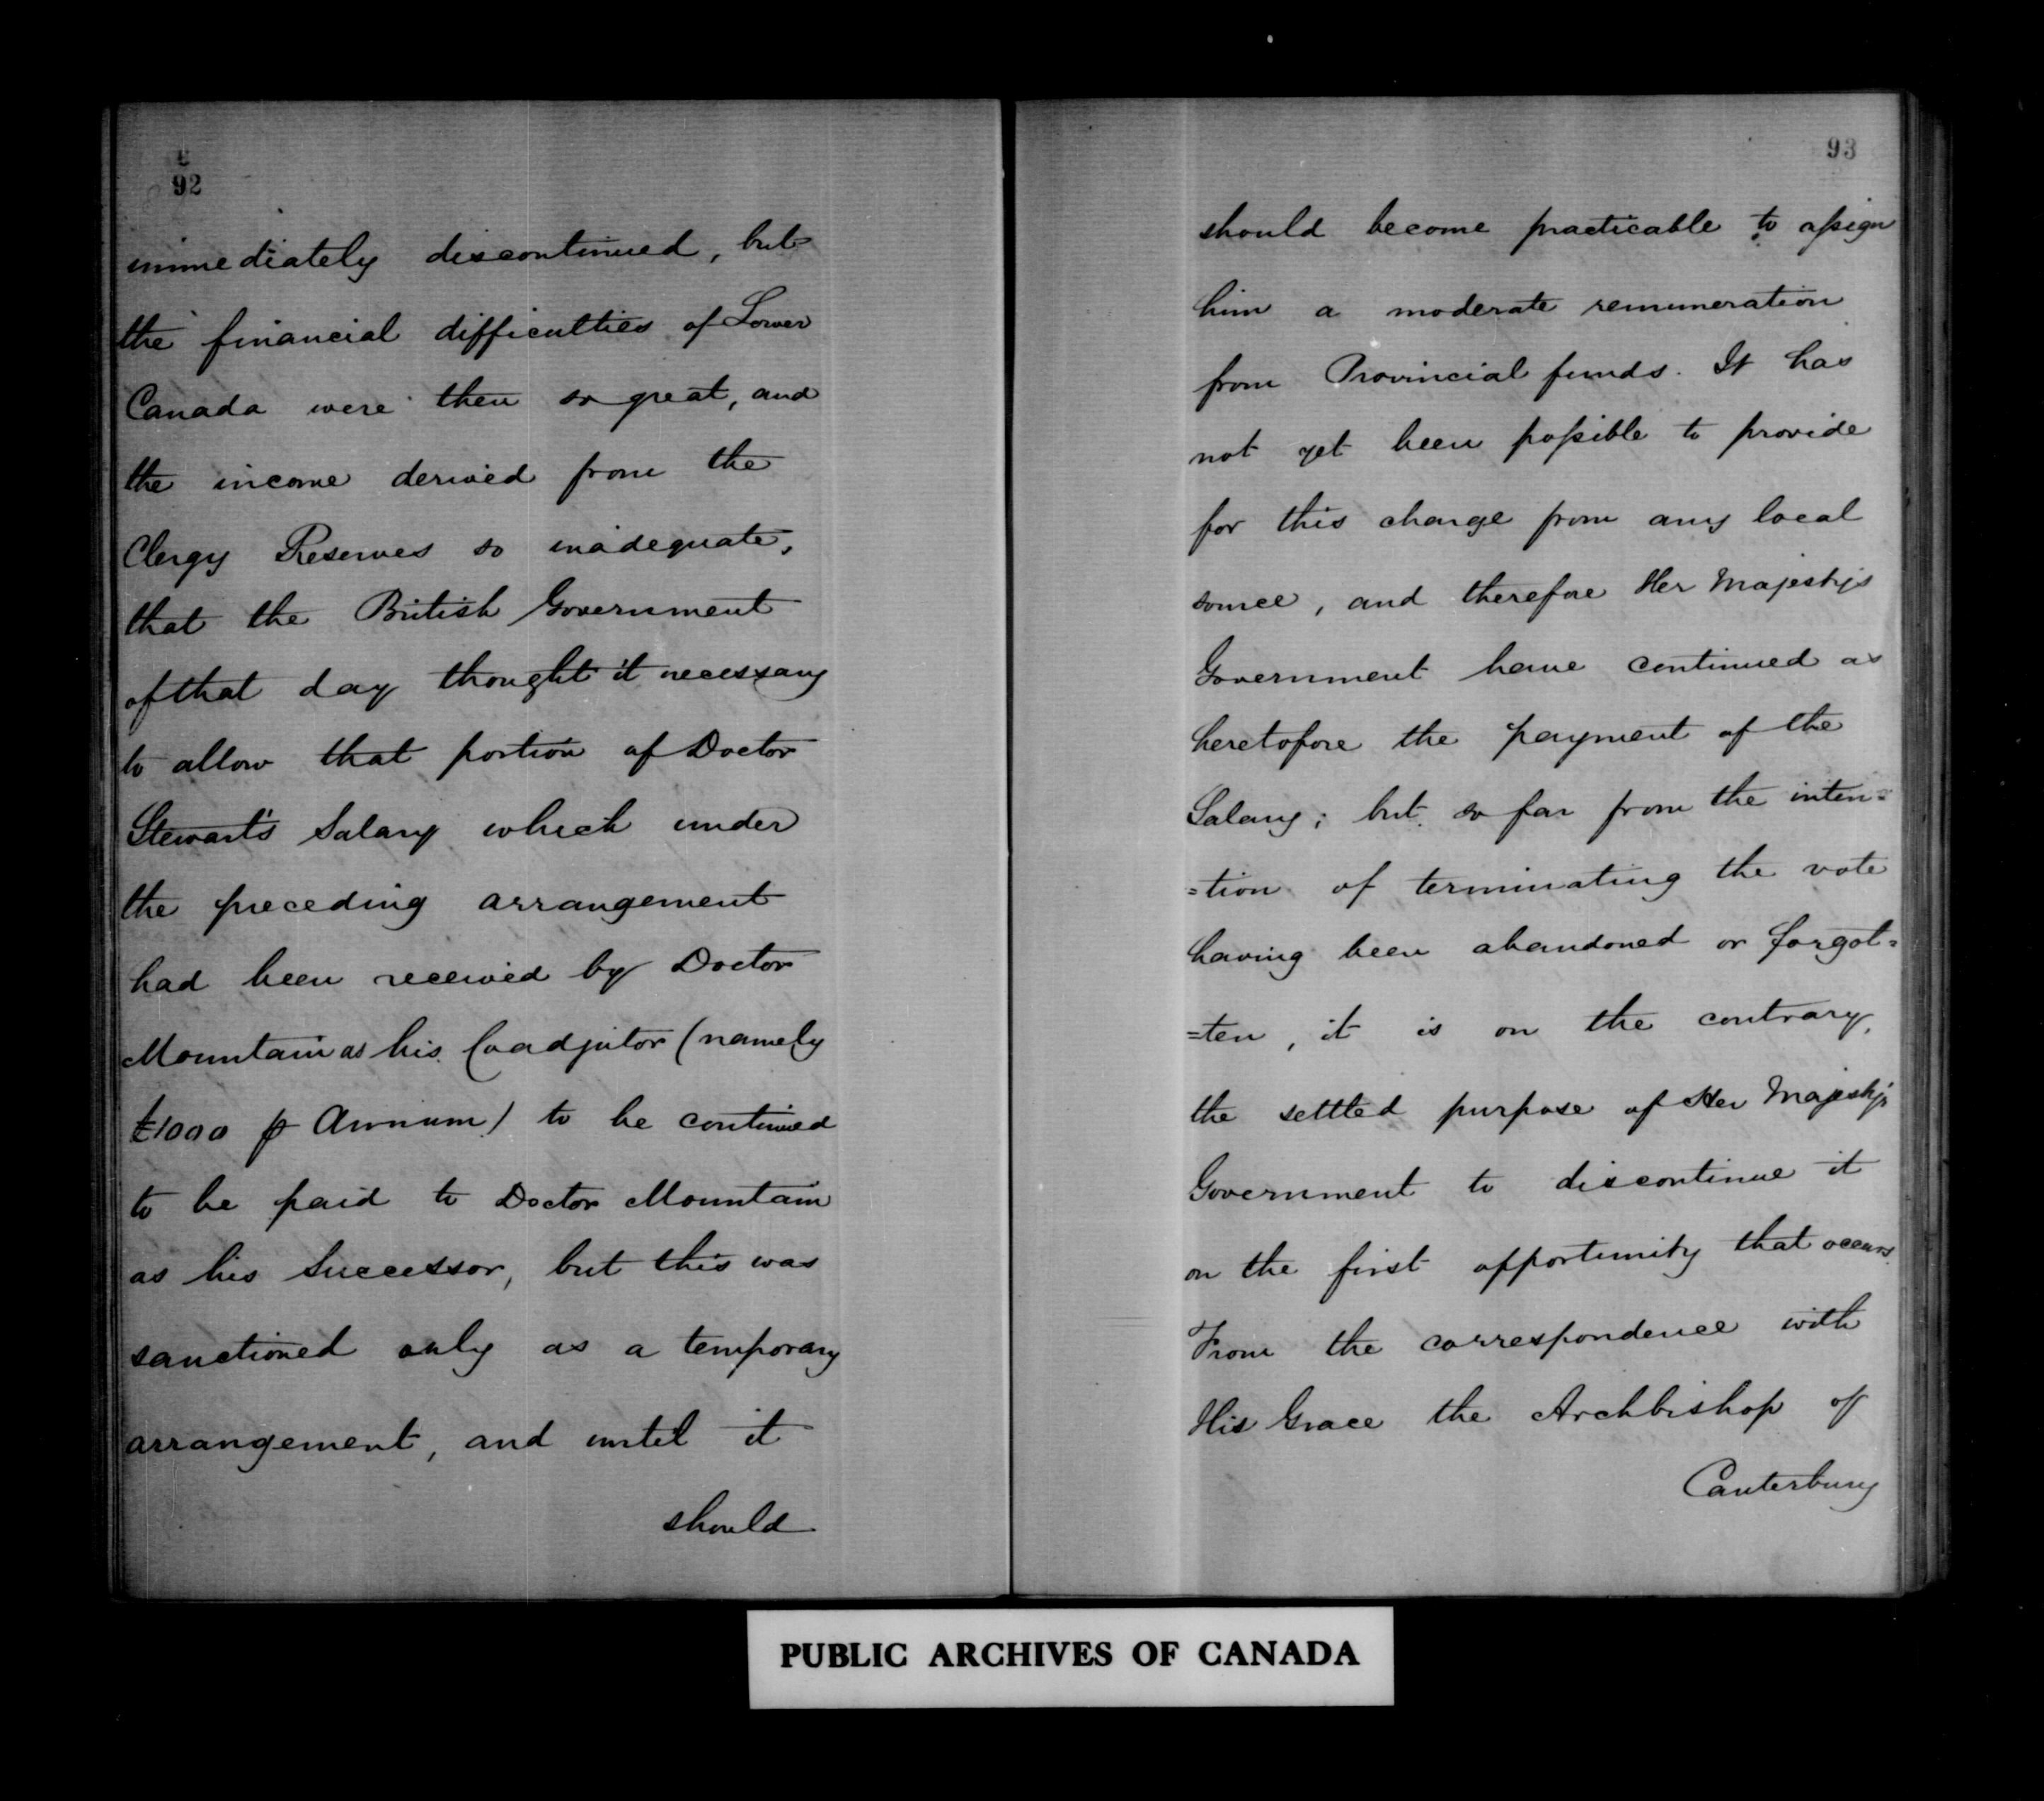 92
immediately discontinued, but
the financial difficulties of Lower
Canada were then so great, and
the income derived from the
Clergy Reserves so inadequate,
that the British Government
of that day thought it necessary
to allow that portion of Doctor
Stewart's Salary which under
the preceding arrangement
had been received by Doctor
Mountain as his Coadjutor (namely
£1000 p Annum) to be continued
to be paid to Doctor Mountain
as his Successor, but this was
sanctioned only as a temporary
arrangement, and until it
should
93
should become practicable to assign
him a moderate remuneration
from Provincial funds. It has
not yet been possible to provide
for this charge from any local
source, and therefore Her Majesty's
Government have continued as
heretofore the payment of the
Salary; but so far from the inten=
=tion of terminating the vote
having been abandoned or forgot=
=ten, it is on the contrary,
the settled purpose of Her Majesty's
Government to discontinue it
on the first opportunity that occurs.
From the correspondence with
His Grace the Archbishop of
Canterbury
PUBLIC ARCHIVES OF CANADA